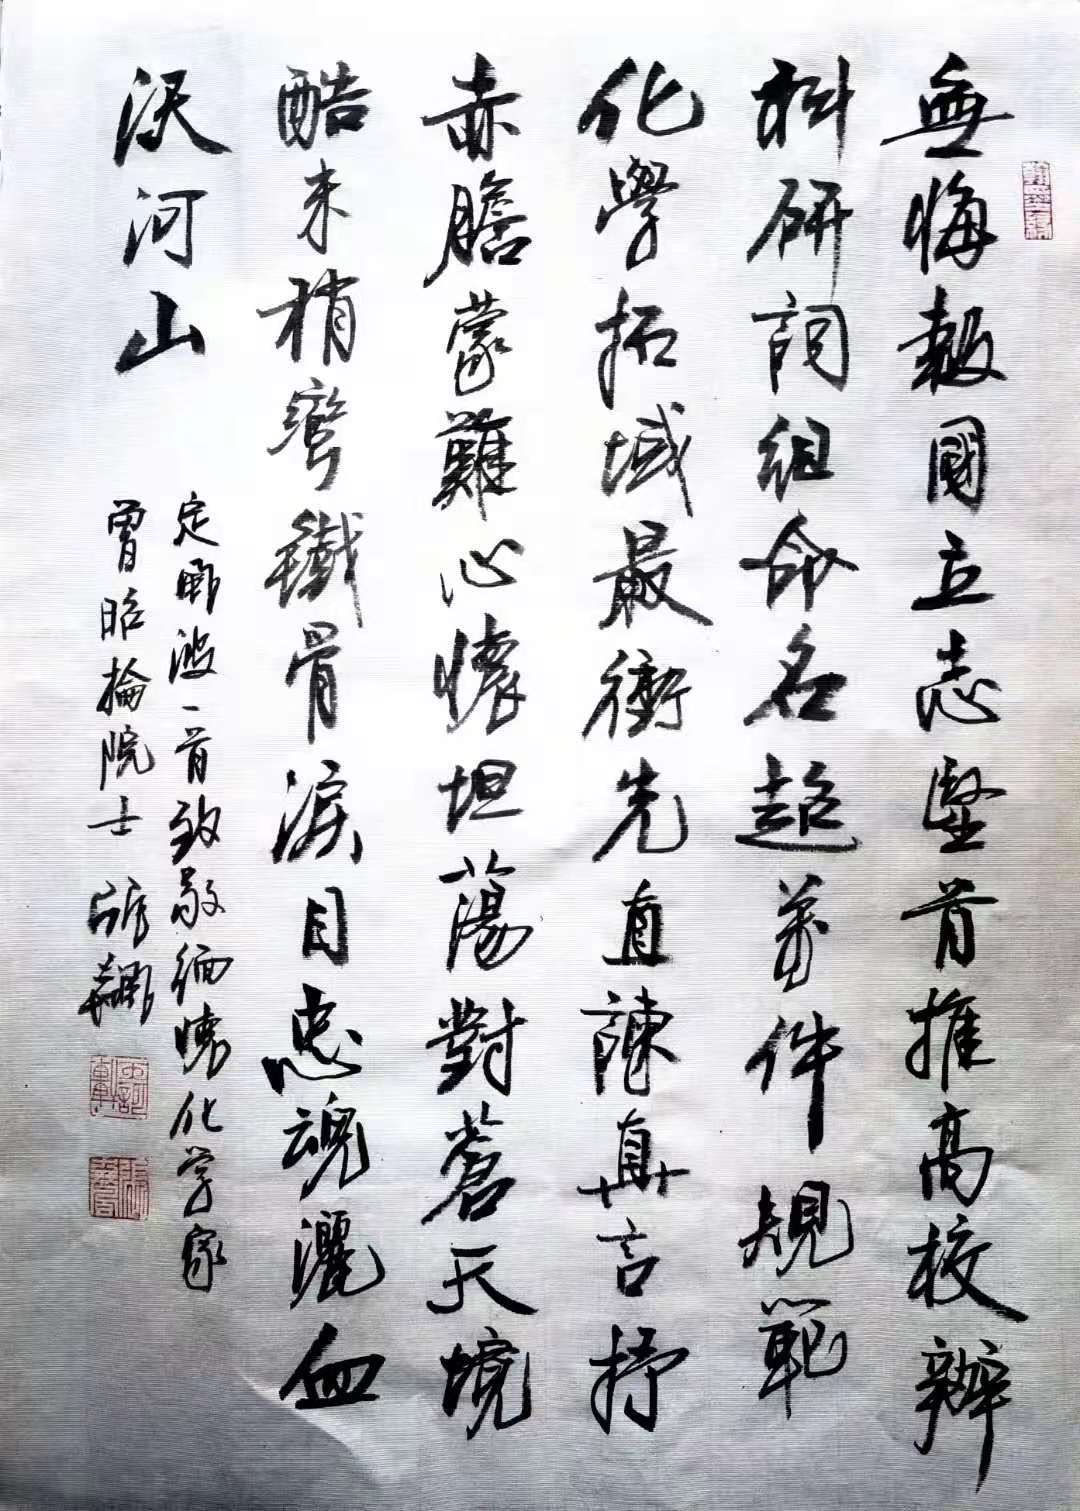 無悔報國立志堅首推高校辦
科研詞組命名超萬件規範
化學拓域最衝先直諫真言抒
赤膽蒙難心懷坦蕩對蒼天境
酷未稍彎鐵骨淚目忠魂灑血
沃河山
定風波一首致敬缅懷化学家
曾昭掄院士